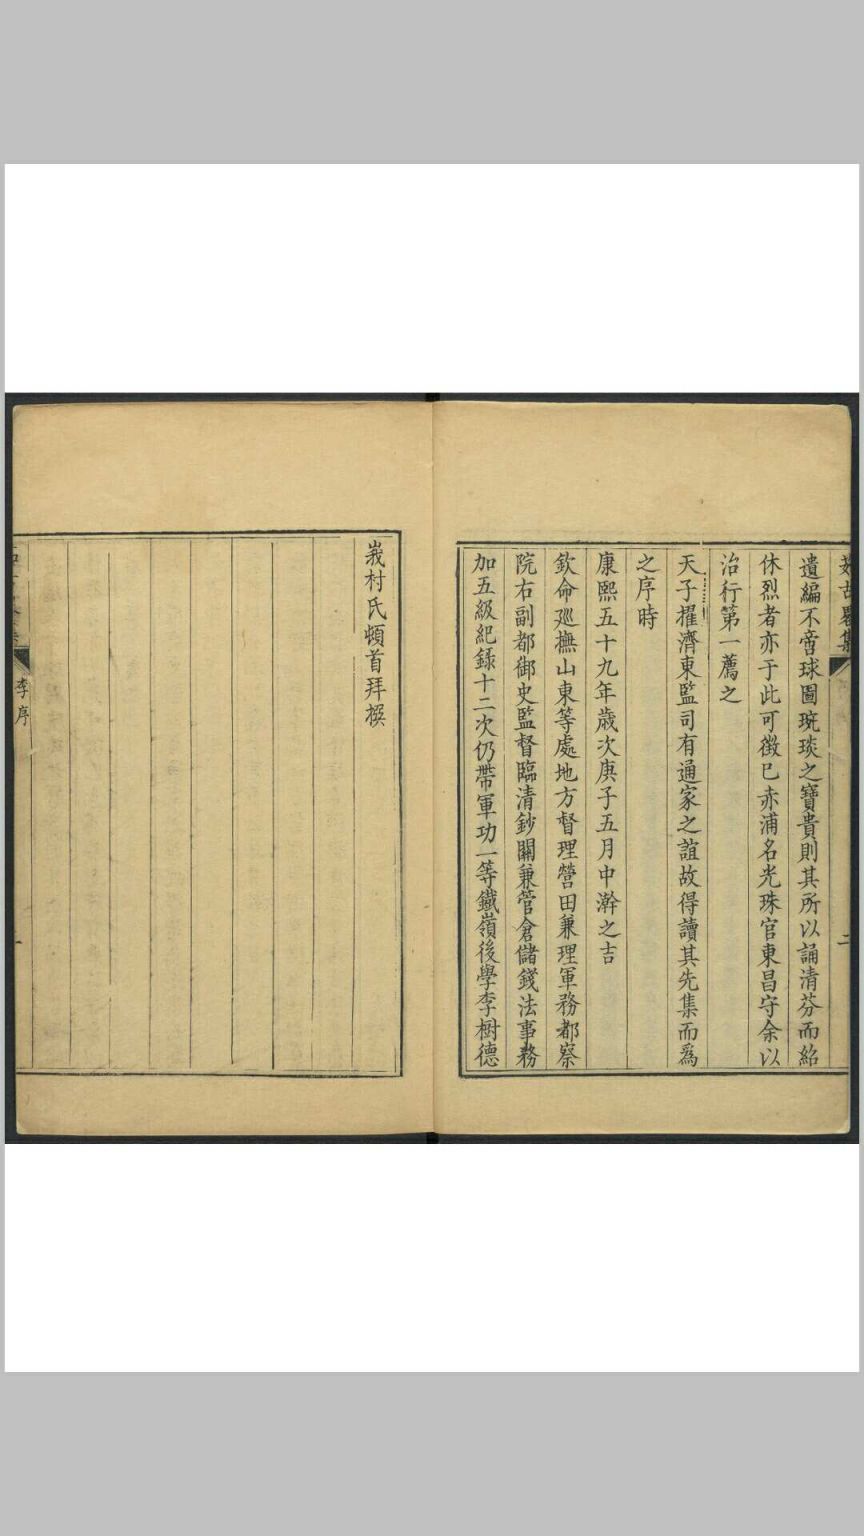 茹古略集
二
遺編不啻球圖琬琰之寶貴則其所以誦清芬而紹
休烈者亦于此可徵已赤浦名光珠官東昌守余以
治行第一薦之
天子擢濟東監司有通家之誼故得讀其先集而爲
之序時
康熙五十九年歲次庚子五月中澣之吉
欽命廵撫山東等處地方督理營田兼理軍務都察
院右副都御史監督臨清鈔關兼管倉儲錢法事務
加五級紀錄十二次仍帶軍功一等鐵嶺後學李樹德
峩村氏頓首拜撰
李序